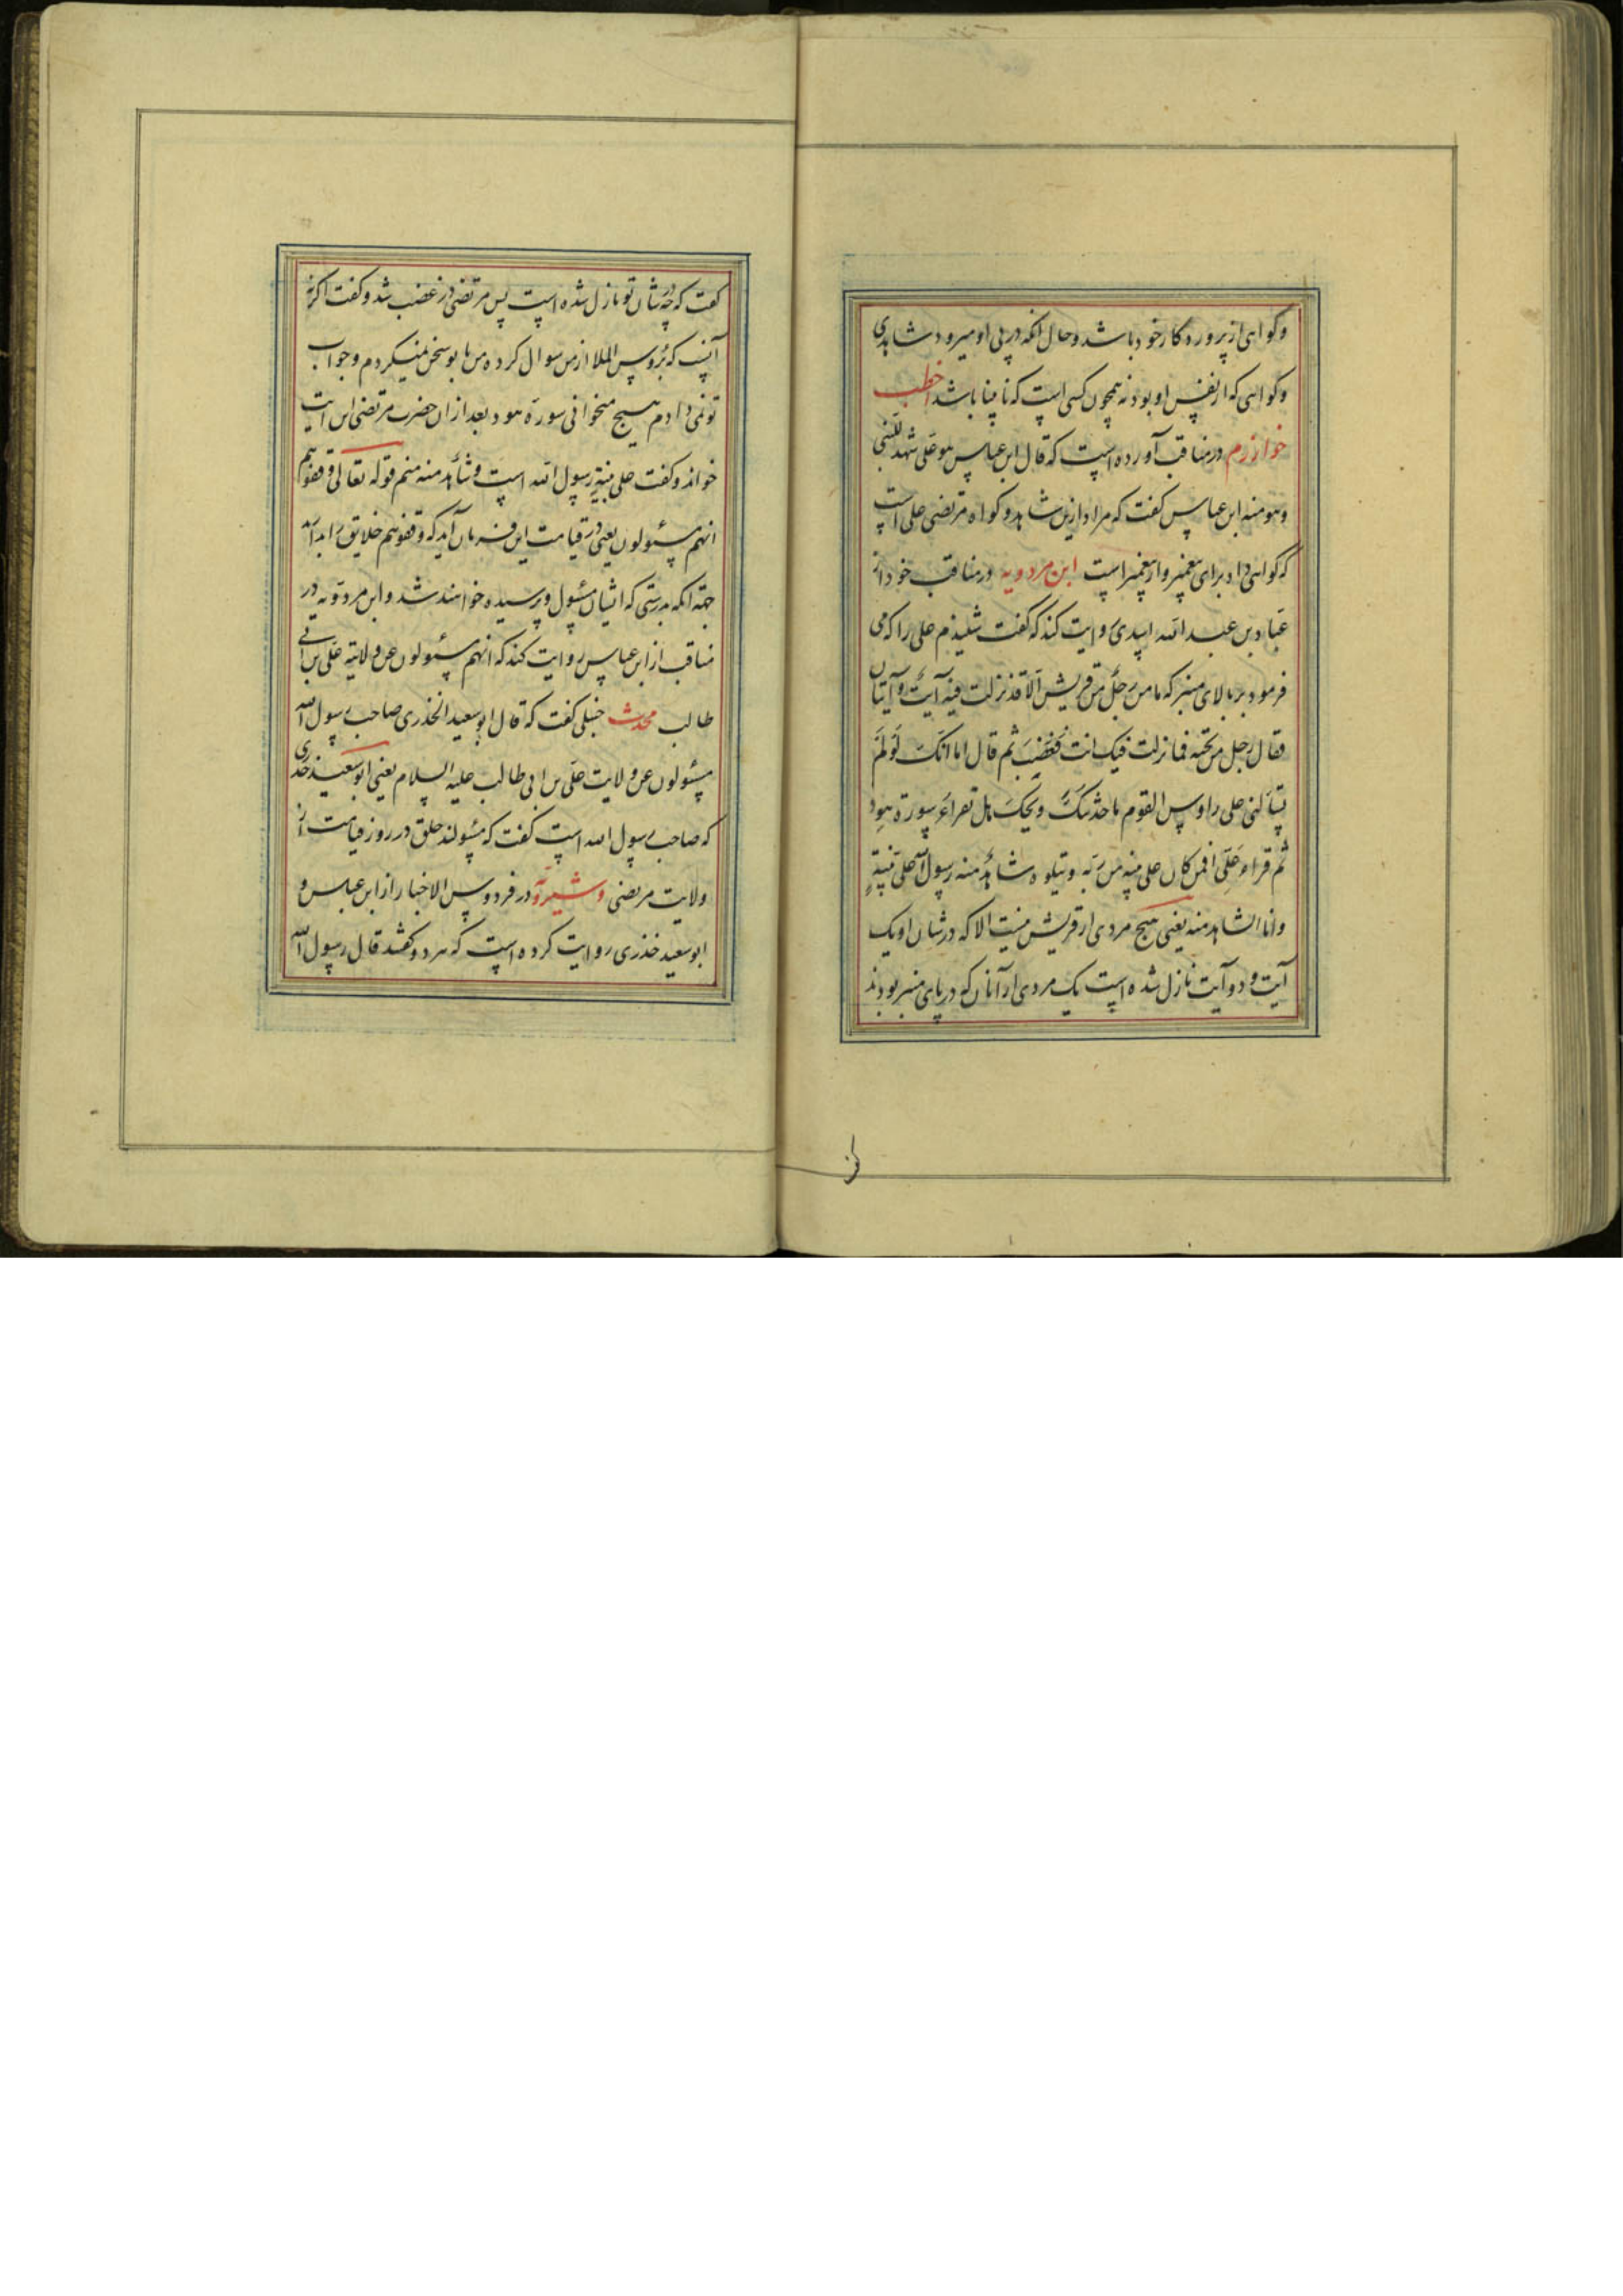 وکواهی از پروردکار خود باشد و حال انکه در پی او میرود شاهدی
وکواهی که از نفس او بود نه همچون کسی است که نابینا باشد اخطب
خوارزم در مناقب آورده است که قال ابن عباس هو علی شهد للنبی
و هو منه ابن عباس کفت که مراد ازین شاهد و کواه مرتضی علی است
که کواهی داد برای پیغمبر و از پیغمبر است ابن مردویه در مناقب خود از
عباد بن عبد الله اسدی روایت کند که کفت شنیدم علی را که می
فرمود بر بالای منبر که ما من رجل من قریش الا قد نزلت فیه آیة و آیتان
فقال رجل من تحته فما نزلت فیک انت فغضب ثم قال اما انک لو لم
تسألنی علی راوس القوم ما حدثتک ویحک هل تقراء سورة هود
ثم قراء علی افمن کان علی بینه من ربه و یتلوه شاهد منه رسول الله علی بینة
و انا الشاهد منه یعنی هیچ مردی از قریش نیست الا که در شان او یک
آیت و دو آیت نازل شده است یک مردی از آنان که در پای منبر بودند
کفت که در شان تو چه نازل شده است پس مرتضی در غضب شد و کفت اکر نه
آنست که بروس الملا از من سوال کرده من با تو سخن نمیکردم و جواب
تو نمی دادم هیچ میخوانی سوره هود بعد از ان حضرت مرتضی این آیت
خواند و کفت علی بینة رسول الله است و شاهد منه منم قوله تعالی وقفوهم
انهم مسئولون یعنی در قیامت این فرمان آید که وقفوهم خلایق را بدارید
جهة انکه بدرستی که ایشان مسئول و پرسیده خواهند شد و ابن مردویه در
مناقب از ابن عباس روایت کند که انهم مسئولون عن ولایة علی بن ابی
طالب محدث حنبلی کفت که قال ابو سعید الخذری صاحب رسول الله
مسئولون عن ولایت علی بن ابی طالب علیه السلام یعنی ابو سعید خذری
که صاحب رسول الله است کفت که مسئولند خلق در روز قیامت از
ولایت مرتضی و شیرویه در فردوس الاخبار از ابن عباس و
ابو سعید خذری روایت کرده است که هر دو کفتند قال رسول الله